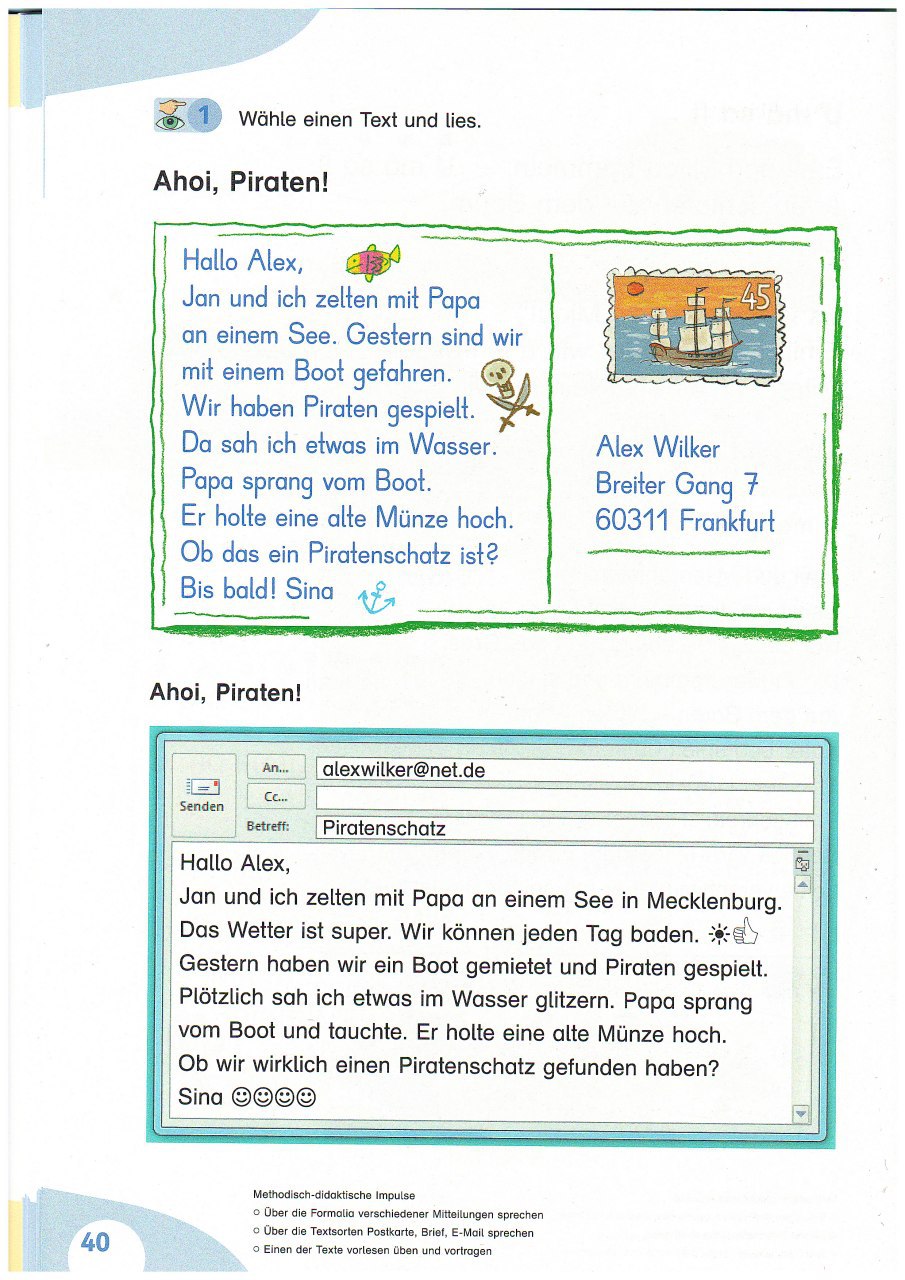 1 Wähle einen Text und lies.
Ahoi, Piraten!
Hallo Alex,
Jan und ich zelten mit Papa
an einem See. Gestern sind wir
mit einem Boot gefahren.
Wir haben Piraten gespielt.
Da sah ich etwas im Wasser.
Papa sprang vom Boot.
Er holte eine alte Münze hoch.
Ob das ein Piratenschatz ist?
Bis bald! Sina
45
Alex Wilker
Breiter Gang 7
60311 Frankfurt
Ahoi, Piraten!
Senden
An... alexwilker@net.de
Cc...
Betreff: Piratenschatz
Hallo Alex,
Jan und ich zelten mit Papa an einem See in Mecklenburg.
Das Wetter ist super. Wir können jeden Tag baden. ☀👍
Gestern haben wir ein Boot gemietet und Piraten gespielt.
Plötzlich sah ich etwas im Wasser glitzern. Papa sprang
vom Boot und tauchte. Er holte eine alte Münze hoch.
Ob wir wirklich einen Piratenschatz gefunden haben?
Sina ☺☺☺☺
Methodisch-didaktische Impulse
○ Über die Formalia verschiedener Mitteilungen sprechen
○ Über die Textsorten Postkarte, Brief, E-Mail sprechen
○ Einen der Texte vorlesen üben und vortragen
40